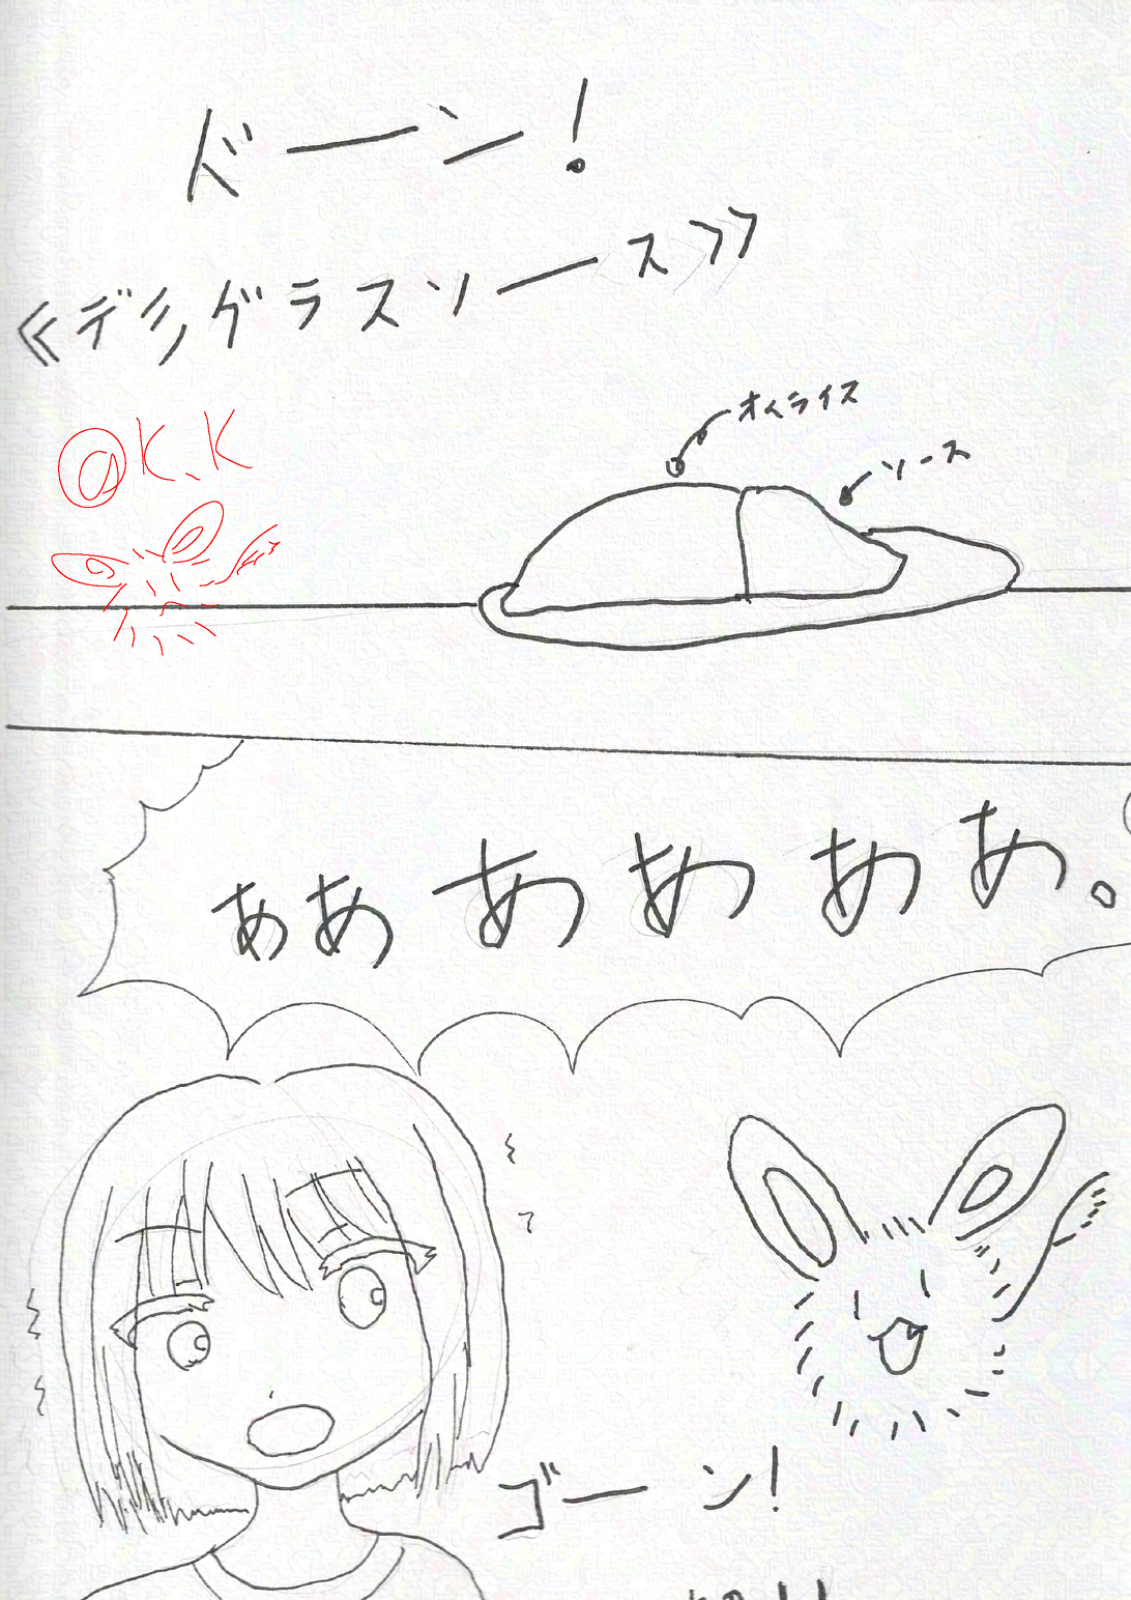 ドーン!
《デミグラスソース》
@K.K
オムライス
ソース
ぁあああああ。
ゴーン!